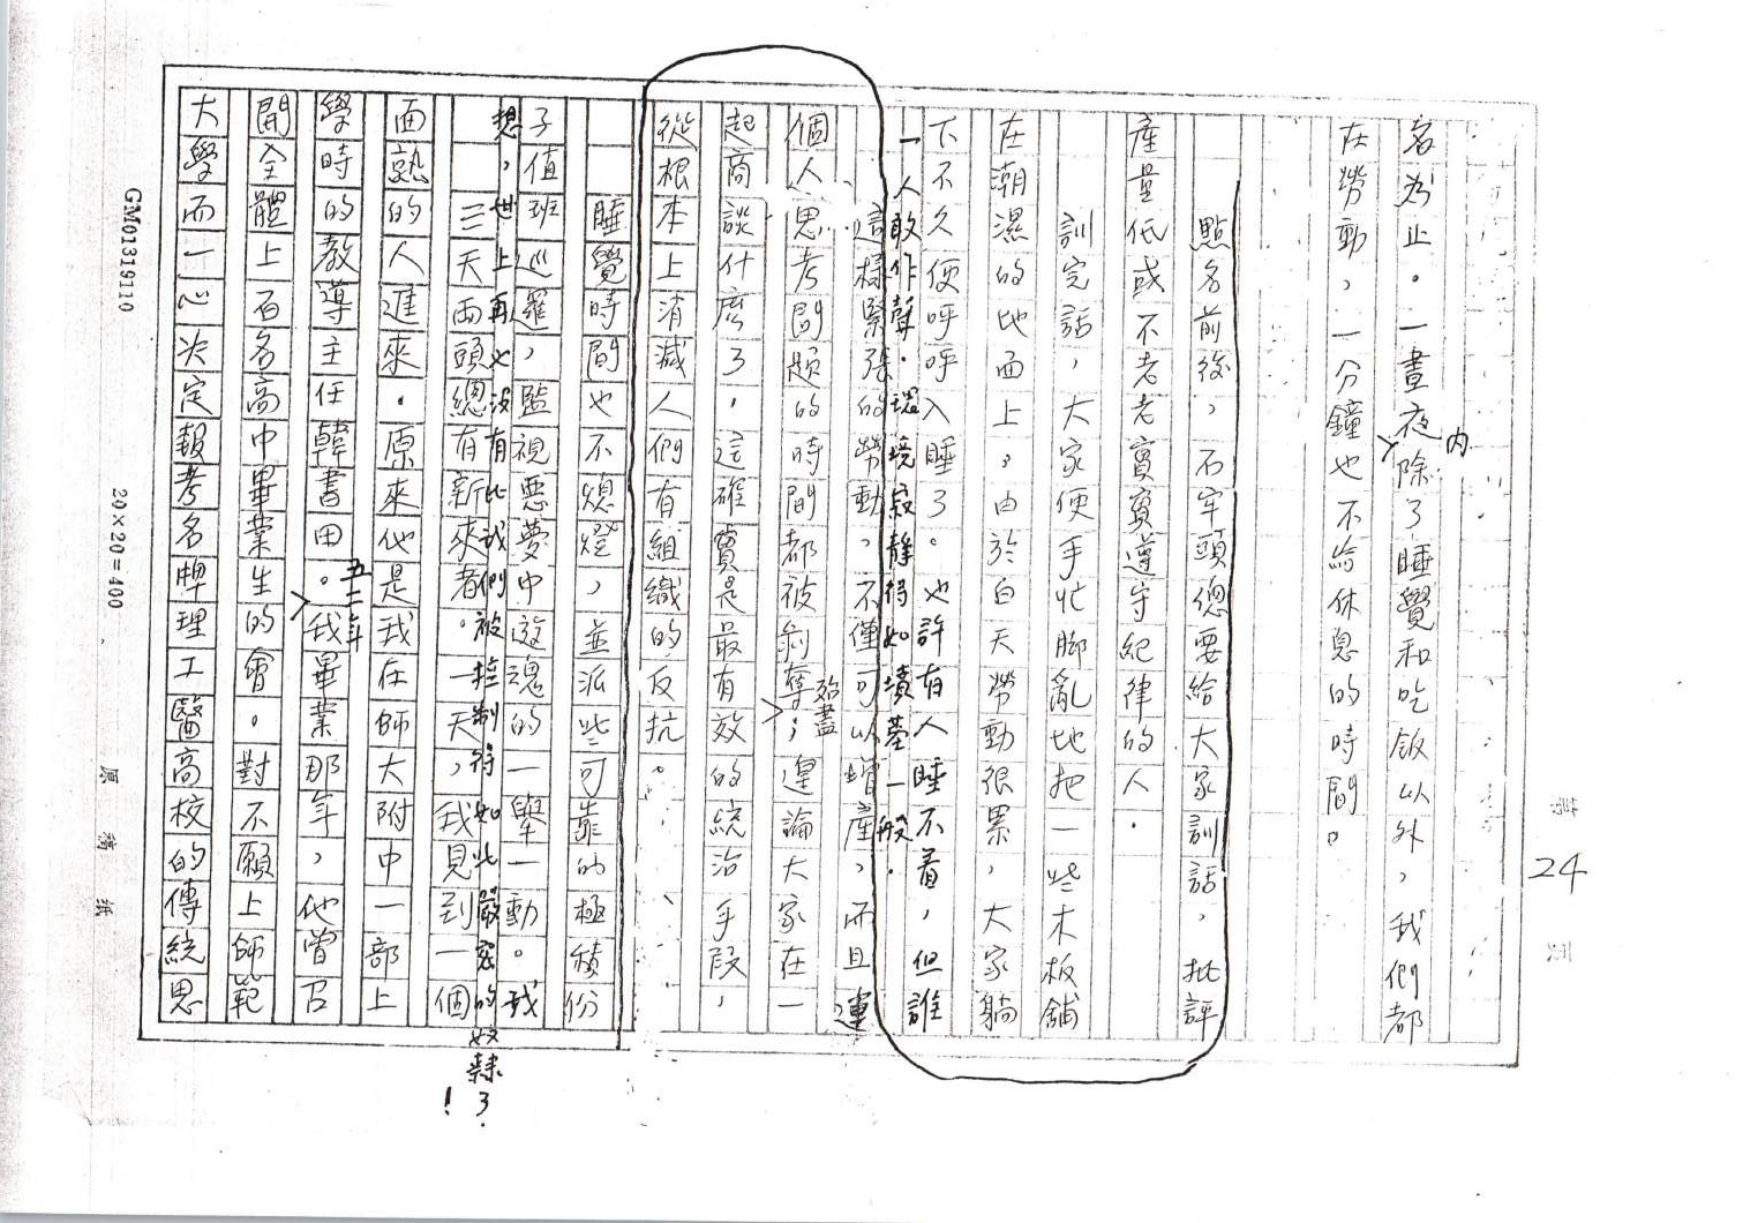 名為止。一晝夜內除了睡覺和吃飯以外，我們都
在勞動，一分鐘也不給休息的時間。
點名前後，石牢頭總要給大家訓話，批評
產量低或不老老實實遵守紀律的人。
訓完話，大家便手忙腳亂地把一些木板舖
在潮濕的地面上，由於白天勞動很累，大家躺
下不久便呼呼入睡了。也許有人睡不着，但誰
一人敢作聲．環境寂靜得如墳墓一般．
這樣緊張的勞動，不僅可以增產，而且連
個人思考問題的時間都被剝奪殆盡；遑論大家在一
起商談什麽了．這確實是最有效的統治手段，
從根本上消滅人們有組織的反抗。
睡覺時間也不熄燈，並派些可靠的極積份
子值班巡邏，監視惡夢中遊魂的一舉一動。我
想，世上再也沒有比我們被控制得如此嚴密的奴隸了！
三天兩頭總有新來者。一天，我見到一個
面熟的人進來．原來他是我在師大附中一部上
學時的教導主任韓書田。五二年我畢業那年，他曾召
開全體上百名高中畢業生的會。對不願上師範
大學而一心決定報考名牌理工醫高校的傳統思
24
第
頁
GM01319110
20×20=400
原稿紙